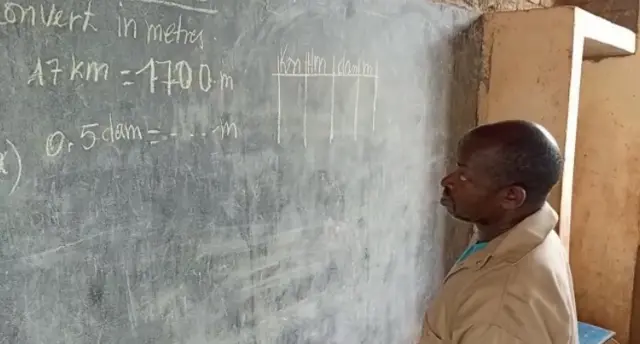 onvert in metres.
17 km = 1700.m
Km Hm dam m
0,5 dam = .... m
x)